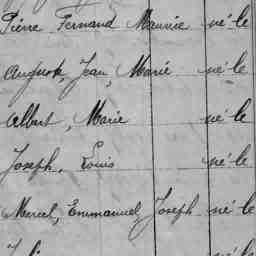 Pierre Fernand Maurice né le
August, Jean, Marie né le
Albert, Marie né le
Joseph, Louis né le
Marcel, Emmanuel, Joseph né le